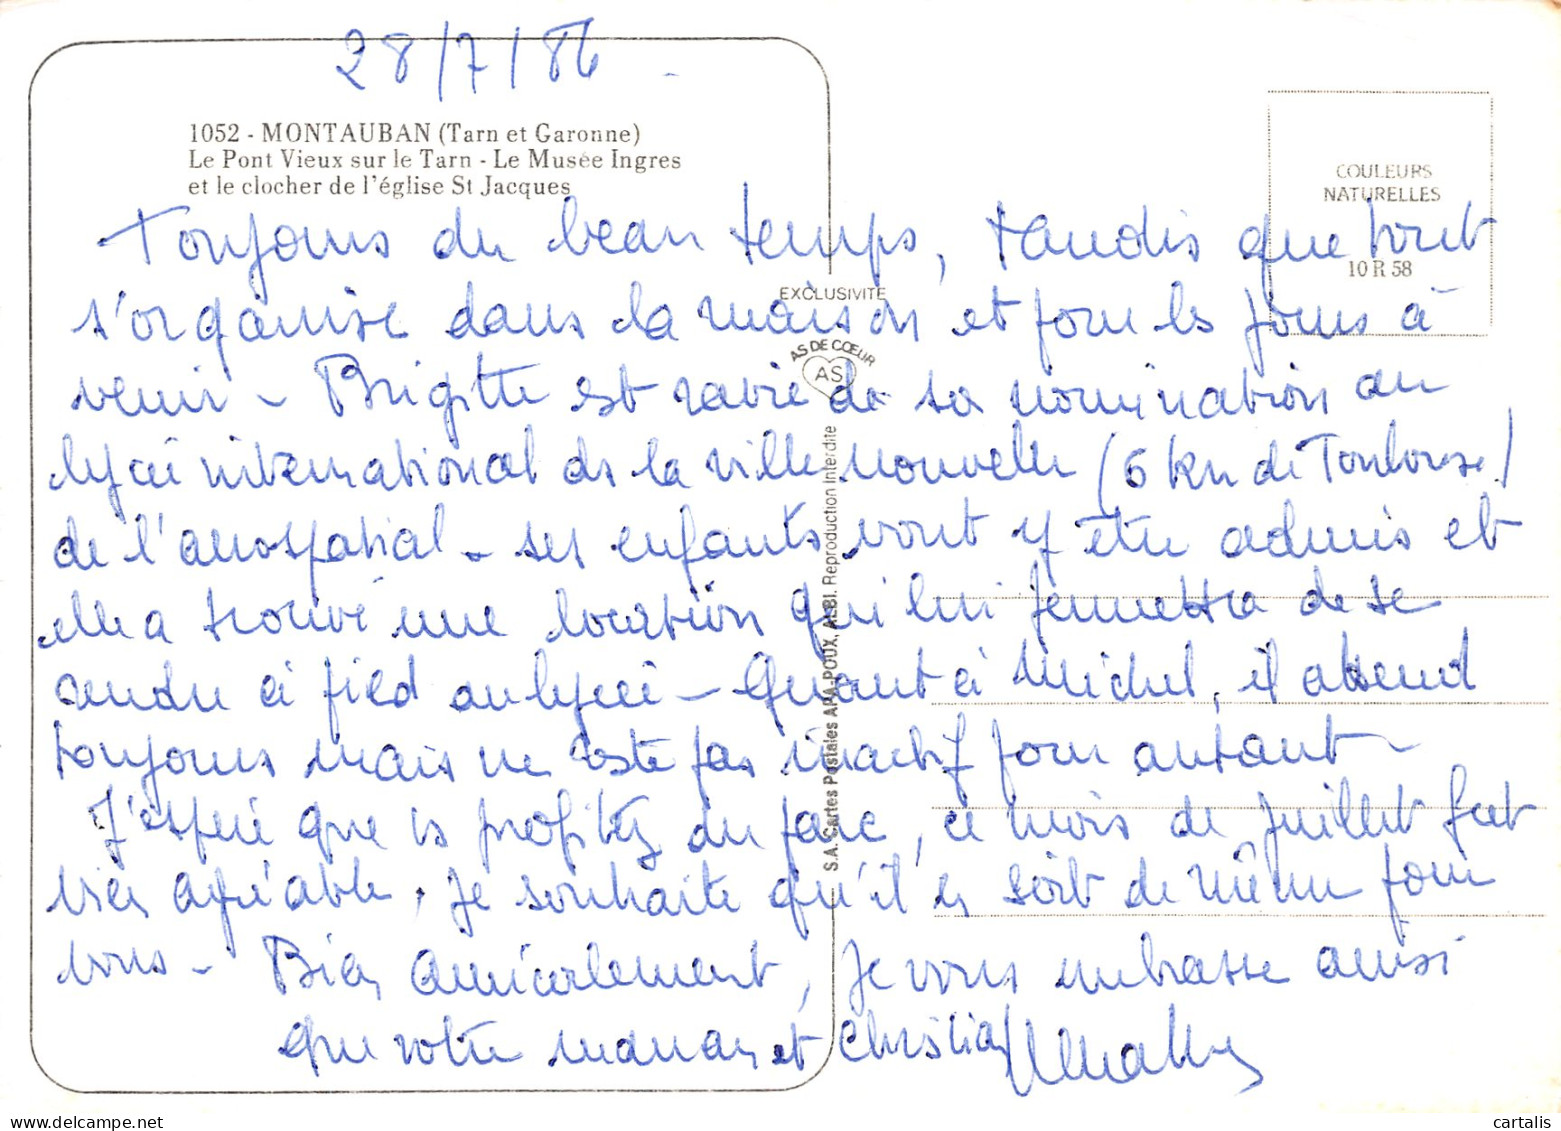 28/7/86
1052 - MONTAUBAN (Tarn et Garonne)
Le Pont Vieux sur le Tarn - Le Musée Ingres
et le clocher de l'église St Jacques
COULEURS
NATURELLES
10 R 58
EXCLUSIVITE
AS DE CŒUR
AS
S.A. Cartes Postales APA-POUX, ALBI. Reproduction Interdite
Toujours du beau temps, tandis que tout
s'organise dans la maison et pour les jours à
venir - Brigitte est ravie de sa nomination au
lycée international ds la ville nouvelle (6 km de Toulouse)
de l'aérospatial - ses enfants vont y être admis et
elle a trouvé une location qui lui permettra de se
rendre à pied au lycée - Quant à Michel, il attend
toujours mais ne reste pas inactif pour autant -
J'espère que vs profitez du parc, ce mois de juillet fut
très agréable, je souhaite qu'il en soit de même pour
vous - Bien amicalement, je vous embrasse ainsi
que votre maman et Christian